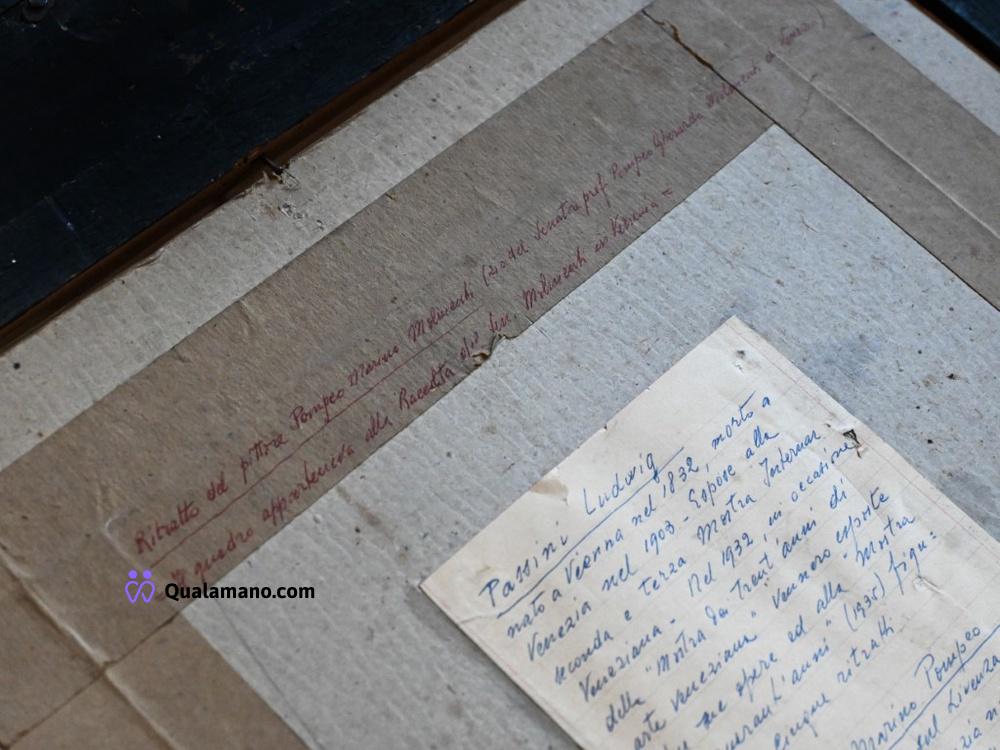 Ritratto del pittore Pompeo Marino Molmenti (zio del Senatore prof. Pompeo Gherardo Molmenti di Venezia)
quadro appartenuto alla Raccolta del Sen. Molmenti in Venezia =
Passini Ludwig
nato a Vienna nel 1832, morto a
Venezia nel 1903 - Espose alla
seconda e terza Mostra Internaz.
Veneziana - Nel 1932, in occasione
della "Mostra dei Trent'anni di
arte veneziana" vennero esposte
sue opere ed alla "Mostra
Quarant'anni" (1935) figu=
cinque ritratti
Marino Pompeo
sul Livenza
Qualamano.com